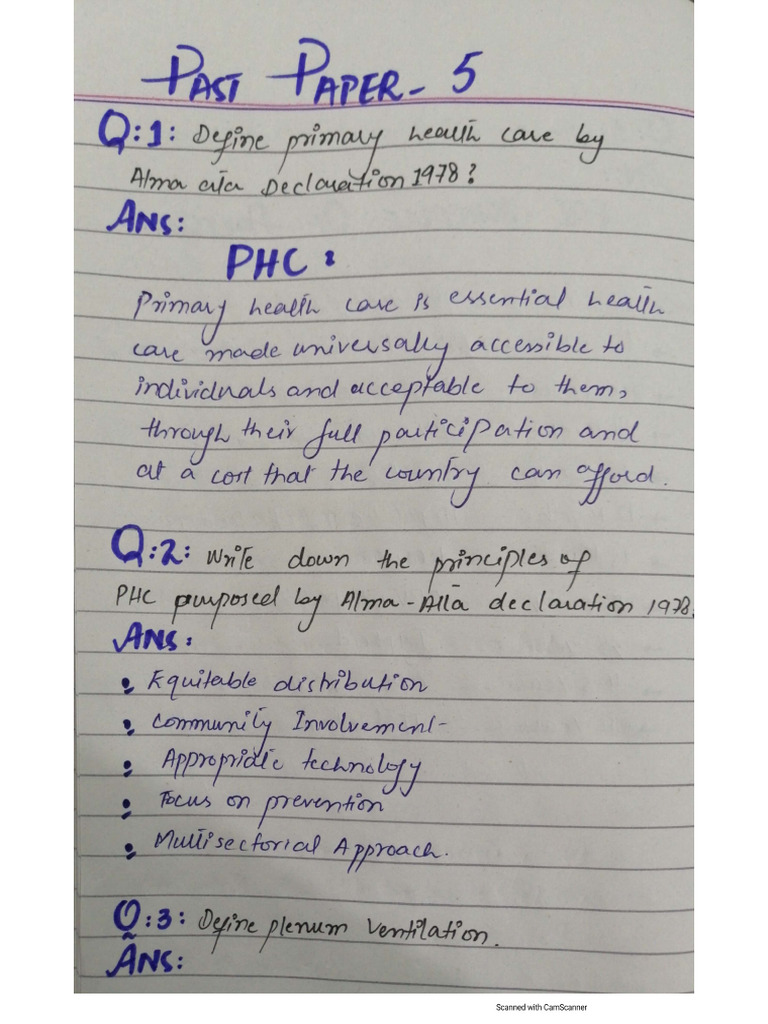 PAST PAPER- 5
Q:1: Define primary health care by
Alma ata Declaration 1978?
ANS:
PHC:
Primary health care is essential health
care made universally accessible to
individuals and acceptable to them,
through their full participation and
at a cost that the country can afford.
Q:2: Write down the principles of
PHC purposed by Alma-Atta declaration 1978.
ANS:
• Equitable distribution
• Community Involvement-
• Appropriate technology
• Focus on prevention
• Multisectorial Approach.
Q:3: Define plenum ventilation.
ANS:
Scanned with CamScanner